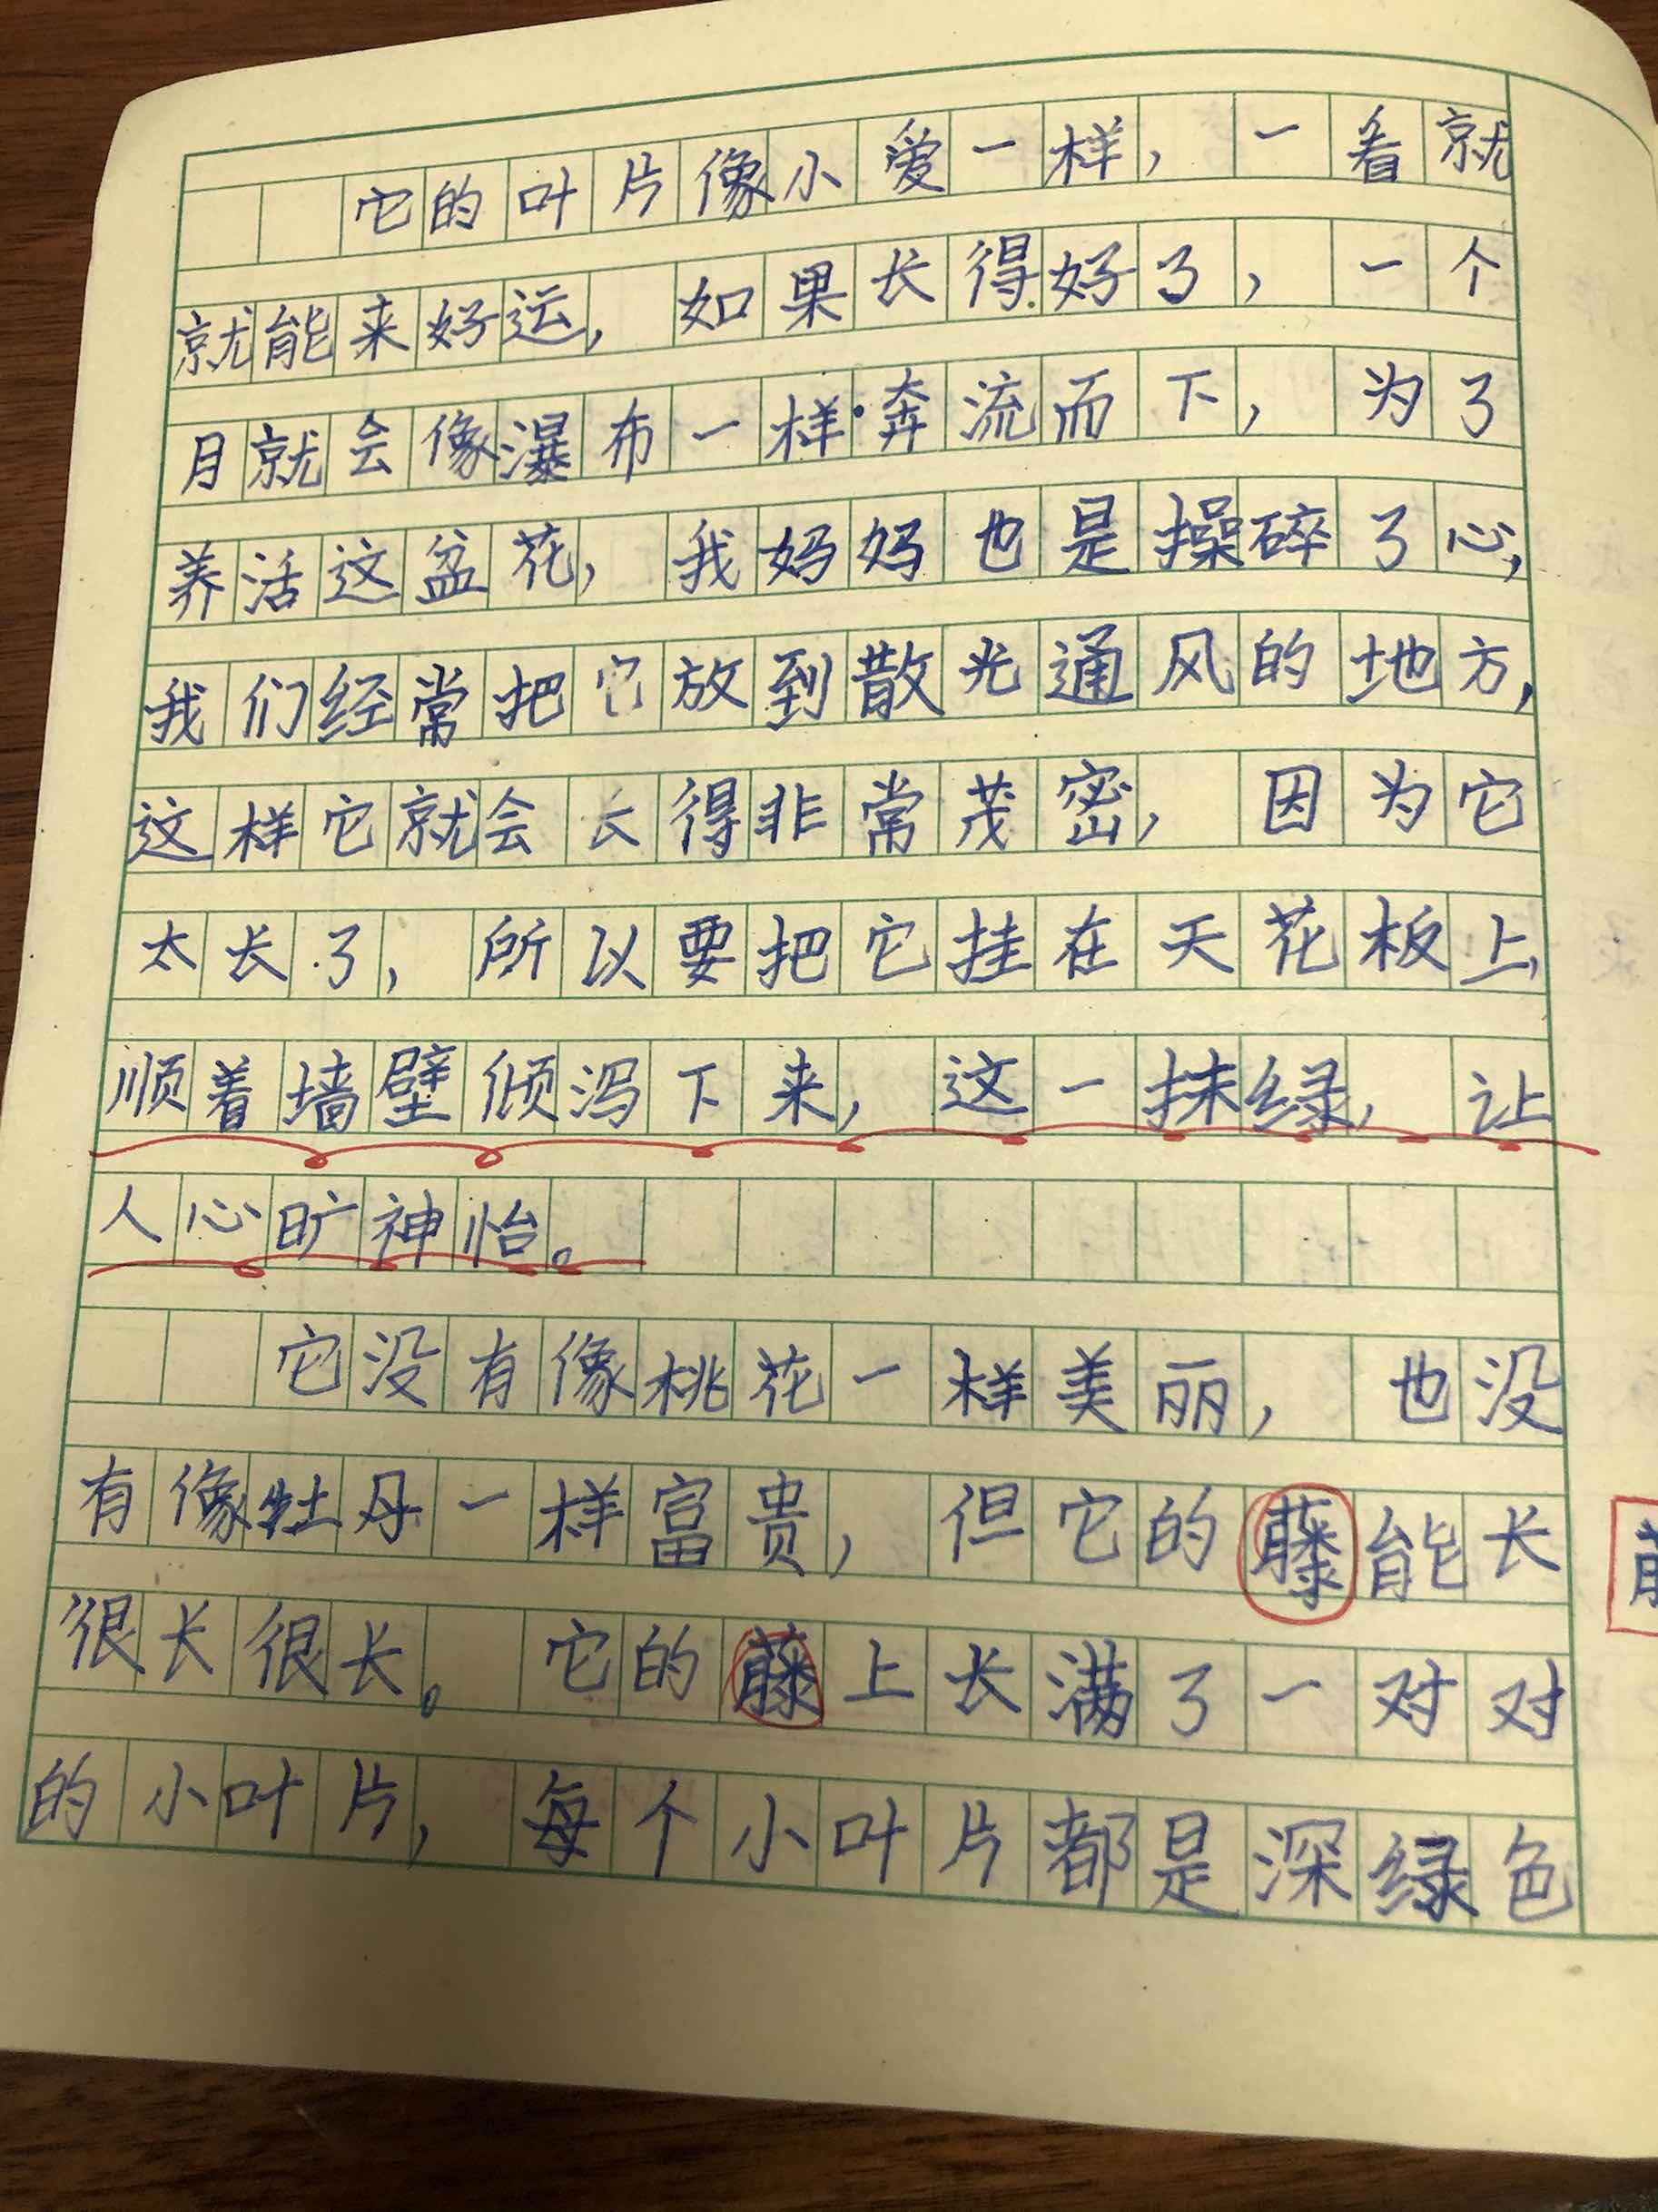 它的叶片像小爱一样，一看就
就能来好运，如果长得好了，一个
月就会像瀑布一样奔流而下，为了
养活这盆花，我妈妈也是操碎了心，
我们经常把它放到散光通风的地方，
这样它就会长得非常茂密，因为它
太长了，所以要把它挂在天花板上，
顺着墙壁倾泻下来，这一抹绿，让
人心旷神怡。
它没有像桃花一样美丽，也没
有像牡丹一样富贵，但它的藤能长
很长很长。它的藤上长满了一对对
的小叶片，每个小叶片都是深绿色